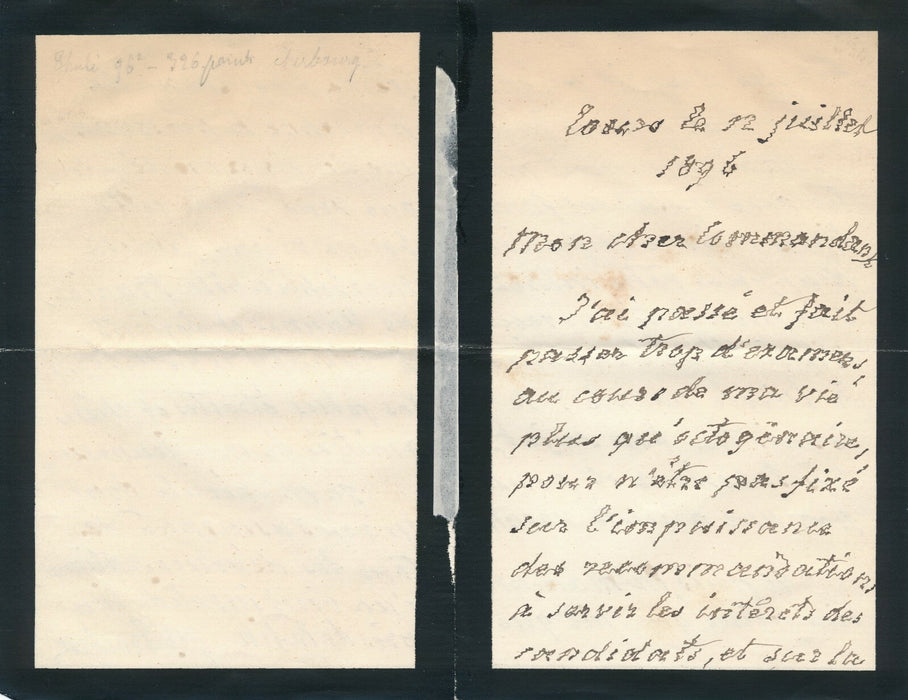 96 - 326 points Cherbourg
Tours le 12 juillet
1896
Mon cher Commandant
J'ai passé et fait
passer trop d'examens,
au cours de ma vie
plus qu'octogénaire,
pour n'être pas fixé
sur l'impuissance
des recommandations
à servir les intérêts des
candidats, et sur la